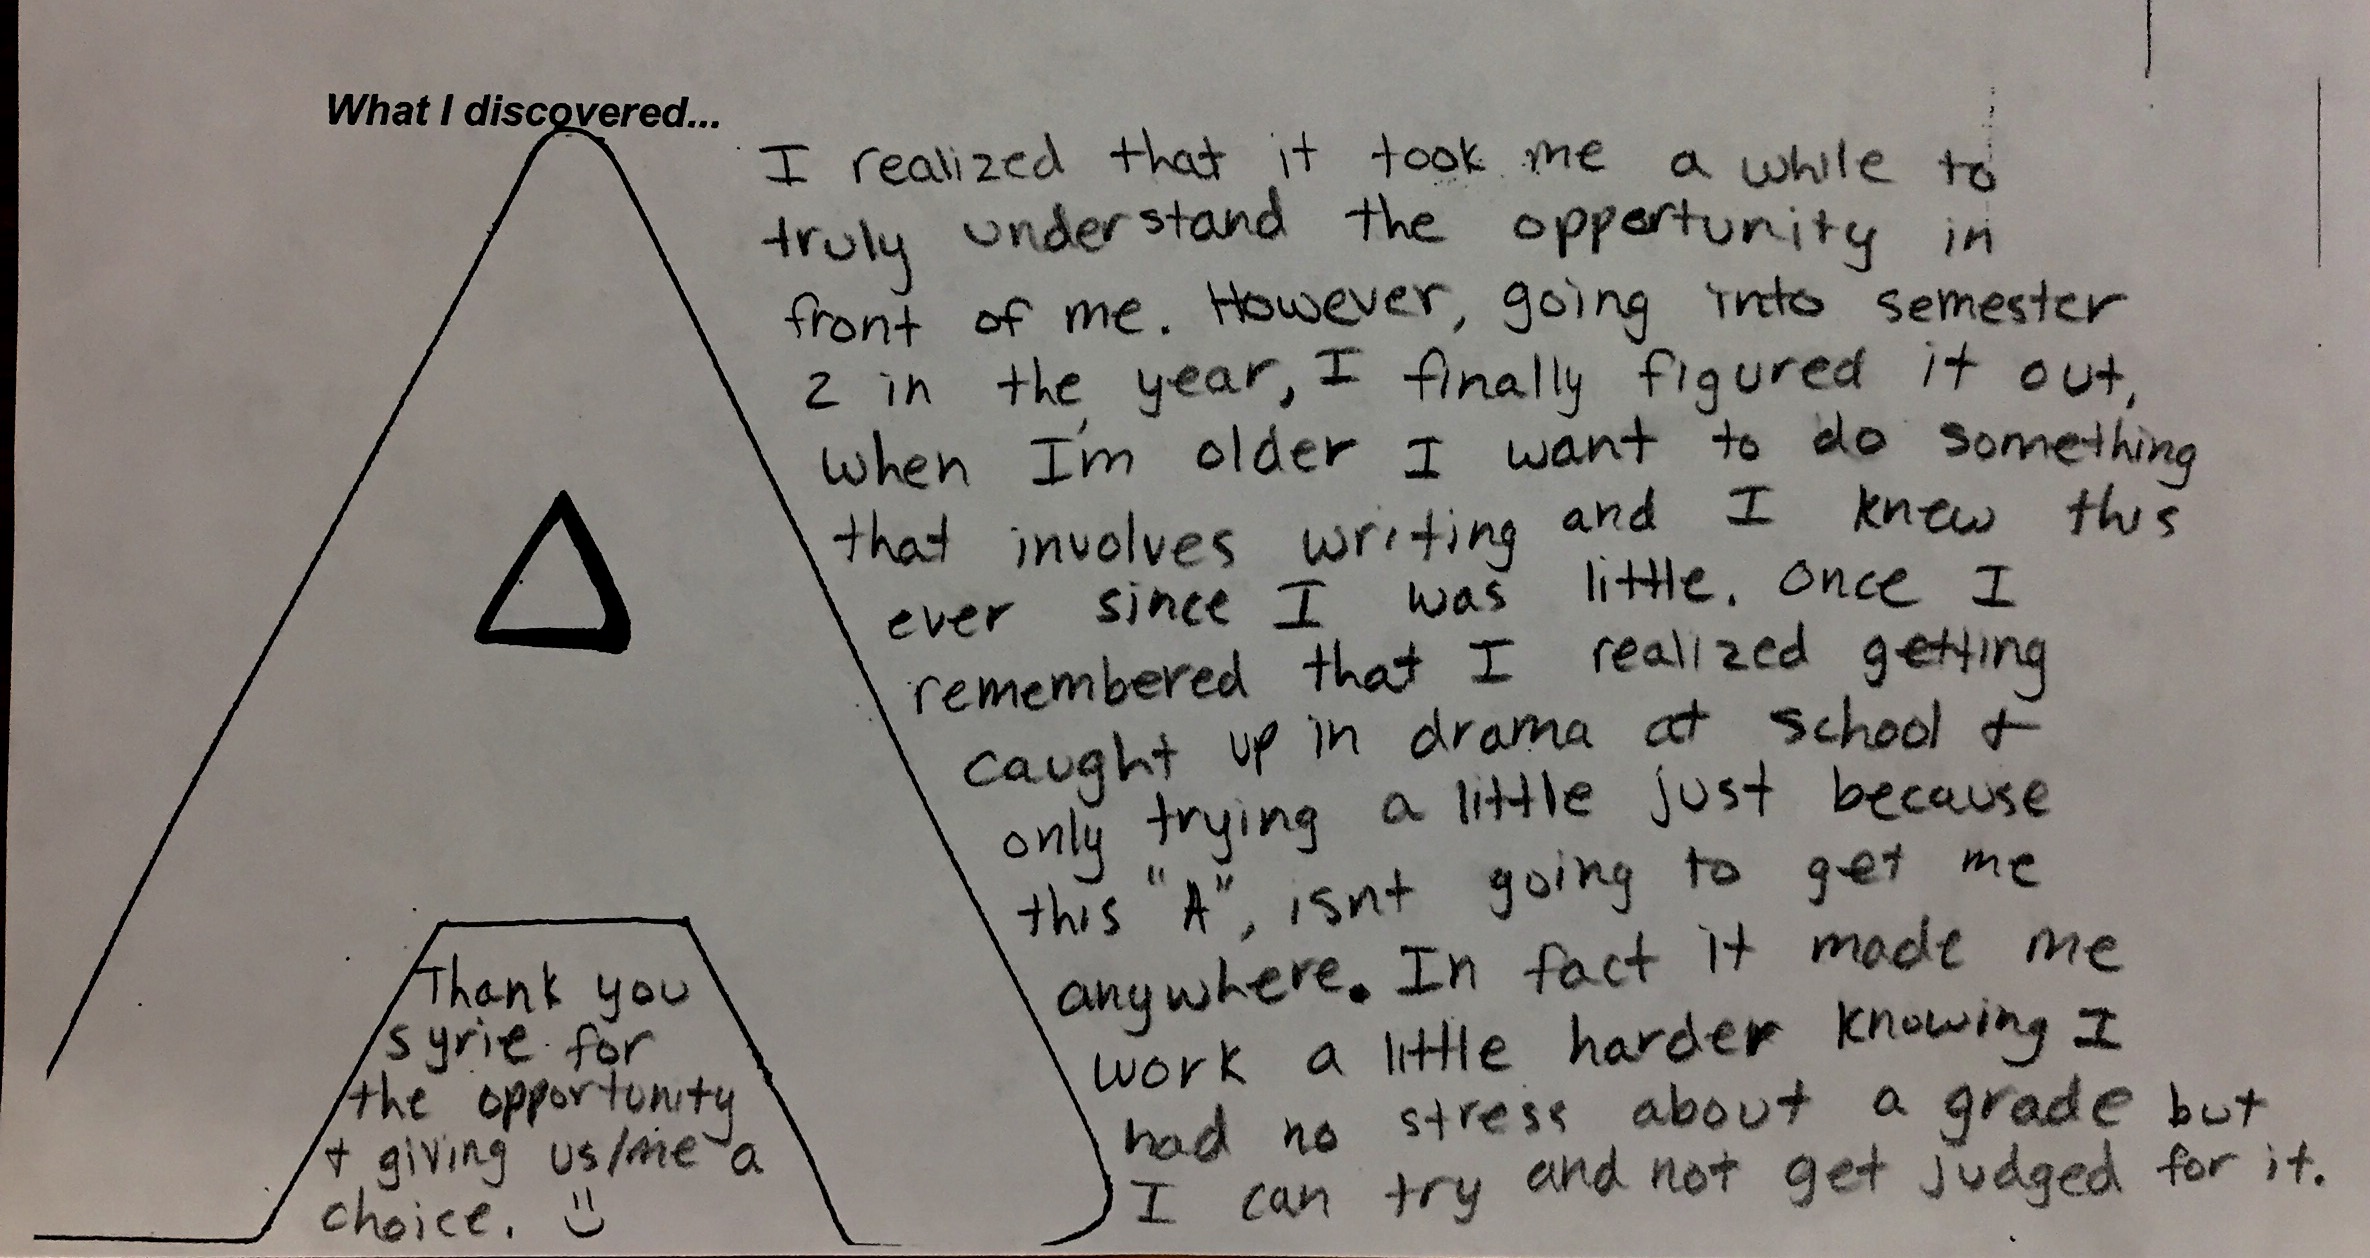 What I discovered...
I realized that it took me a while to
truly understand the opportunity in
front of me. However, going into semester
2 in the year, I finally figured it out,
when I'm older I want to do something
that involves writing and I knew this
ever since I was little. Once I
remembered that I realized getting
caught up in drama at school +
only trying a little just because
this "A", isnt going to get me
anywhere. In fact it made me
work a little harder knowing I
had no stress about a grade but
I can try and not get judged for it.
Thank you
syrie for
the opportunity
+ giving us/me a
choice.